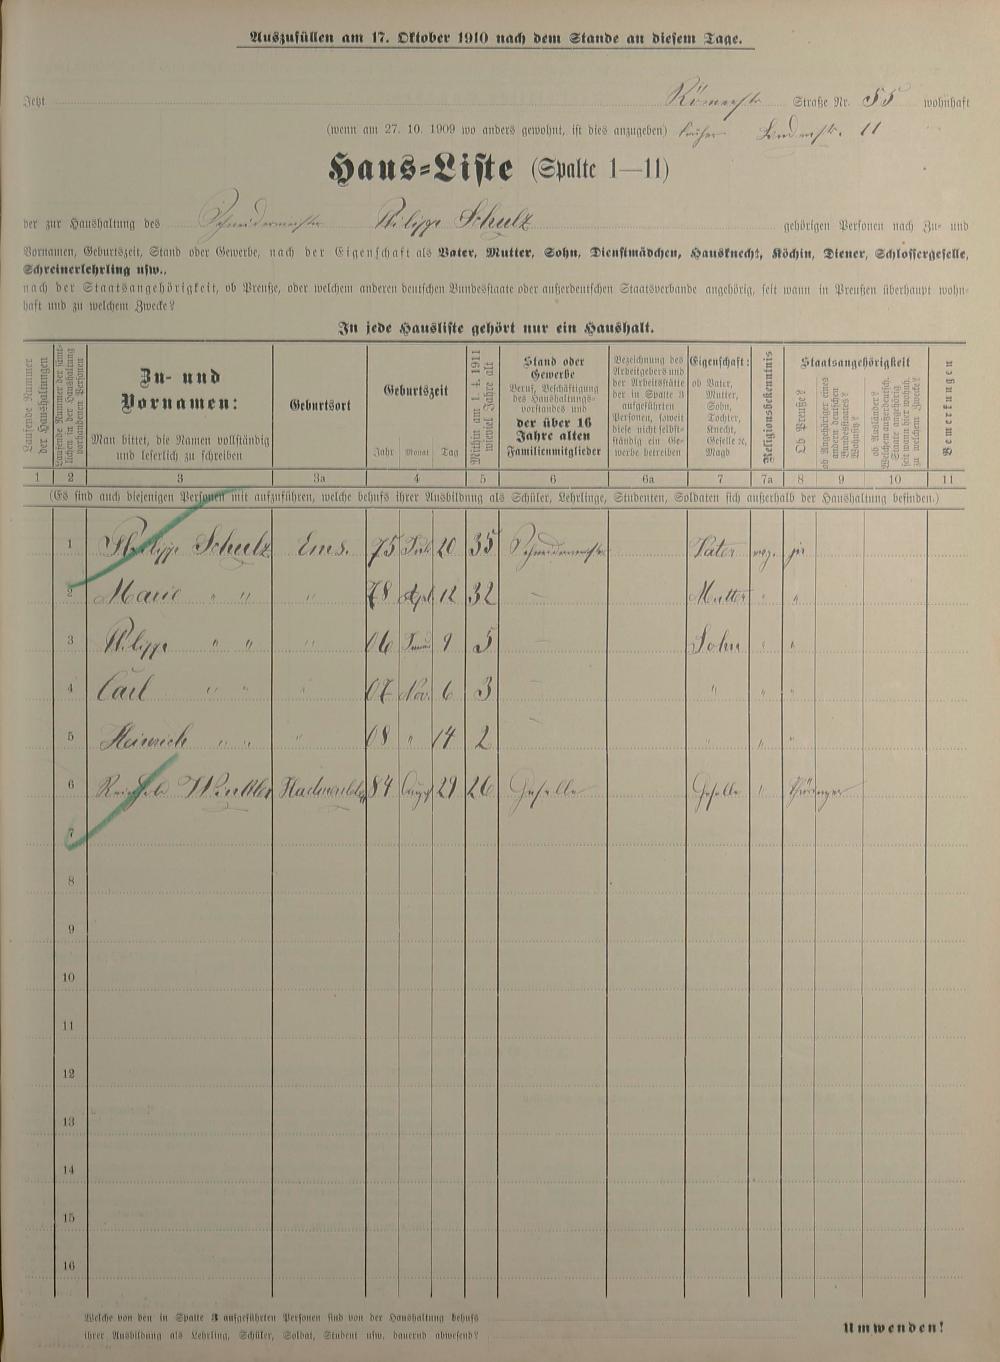 Auszufüllen am 17. Oktober 1910 nach dem Stande an diesem Tage.
Jetzt Römerstr. Straße Nr. 55 wohnhaft
(wenn am 27. 10. 1909 wo anders gewohnt, ist dies anzugeben) früher 11
Haus-Liste (Spalte 1—11)
der zur Haushaltung des Schneidermeister Philipp Schulz gehörigen Personen nach Zu- und
Vornamen, Geburtszeit, Stand oder Gewerbe, nach der Eigenschaft als Vater, Mutter, Sohn, Dienstmädchen, Hausknecht, Köchin, Diener, Schlossergeselle,
Schreinerlehrling usw.,
nach der Staatsangehörigkeit, ob Preuße, oder welchem anderen deutschen Bundesstaate oder außerdeutschen Staatsverbande angehörig, seit wann in Preußen überhaupt wohn-
haft und zu welchem Zwecke?
In jede Hausliste gehört nur ein Haushalt.
Laufende Nummer der Haushaltungen
Laufende Nummer der sämtlichen in der Haushaltung vorhandenen Personen
Zu- und Vornamen:
Man bittet, die Namen vollständig und leserlich zu schreiben
Geburtsort
Geburtszeit
Jahr Monat Tag
Mithin am 1. 4. 1911 wieviel Jahre alt
Stand oder Gewerbe
Beruf, Beschäftigung des Haushaltungsvorstandes und der über 16 Jahre alten Familienmitglieder
Bezeichnung des Arbeitgebers und der Arbeitsstätte der in Spalte 3 aufgeführten Personen, soweit diese nicht selbständig ein Gewerbe betreiben
Eigenschaft:
ob Vater, Mutter, Sohn, Tochter, Knecht, Geselle ec, Magd
Religionsbekenntnis
Staatsangehörigkeit
Ob Preuße?
ob Angehöriger eines andern deutschen Bundesstaates? Wohnsitz?
ob Ausländer? Welchem außerdeutsch. Staate angehörig seit wann hier wohnh. zu welchem Zwecke?
Bemerkungen
1 2 3 3a 4 5 6 6a 7 7a 8 9 10 11
(Es sind auch diejenigen Personen mit aufzuführen, welche behufs ihrer Ausbildung als Schüler, Lehrlinge, Studenten, Soldaten sich außerhalb der Haushaltung befinden.)
1 Philipp Schulz Ems. 75 Juli 20 35 Schneidermeister Vater evg. ja
2 Marie " " " 78 Apl. 12 32 — Mutter " "
3 Philipp " " " 06 9 5 — Sohn " "
4 Carl " " " 07 Nov. 6 3 — " " "
5 Heinrich " " " 08 " 14 2 " " "
6 Reinhold Winkler 84 Aug 29 26 Geselle Geselle " Thüringer
7
8
9
10
11
12
13
14
15
16
Welche von den in Spalte 3 aufgeführten Personen sind von der Haushaltung behufs
ihrer Ausbildung als Lehrling, Schüler, Soldat, Student usw. dauernd abwesend?
Umwenden!